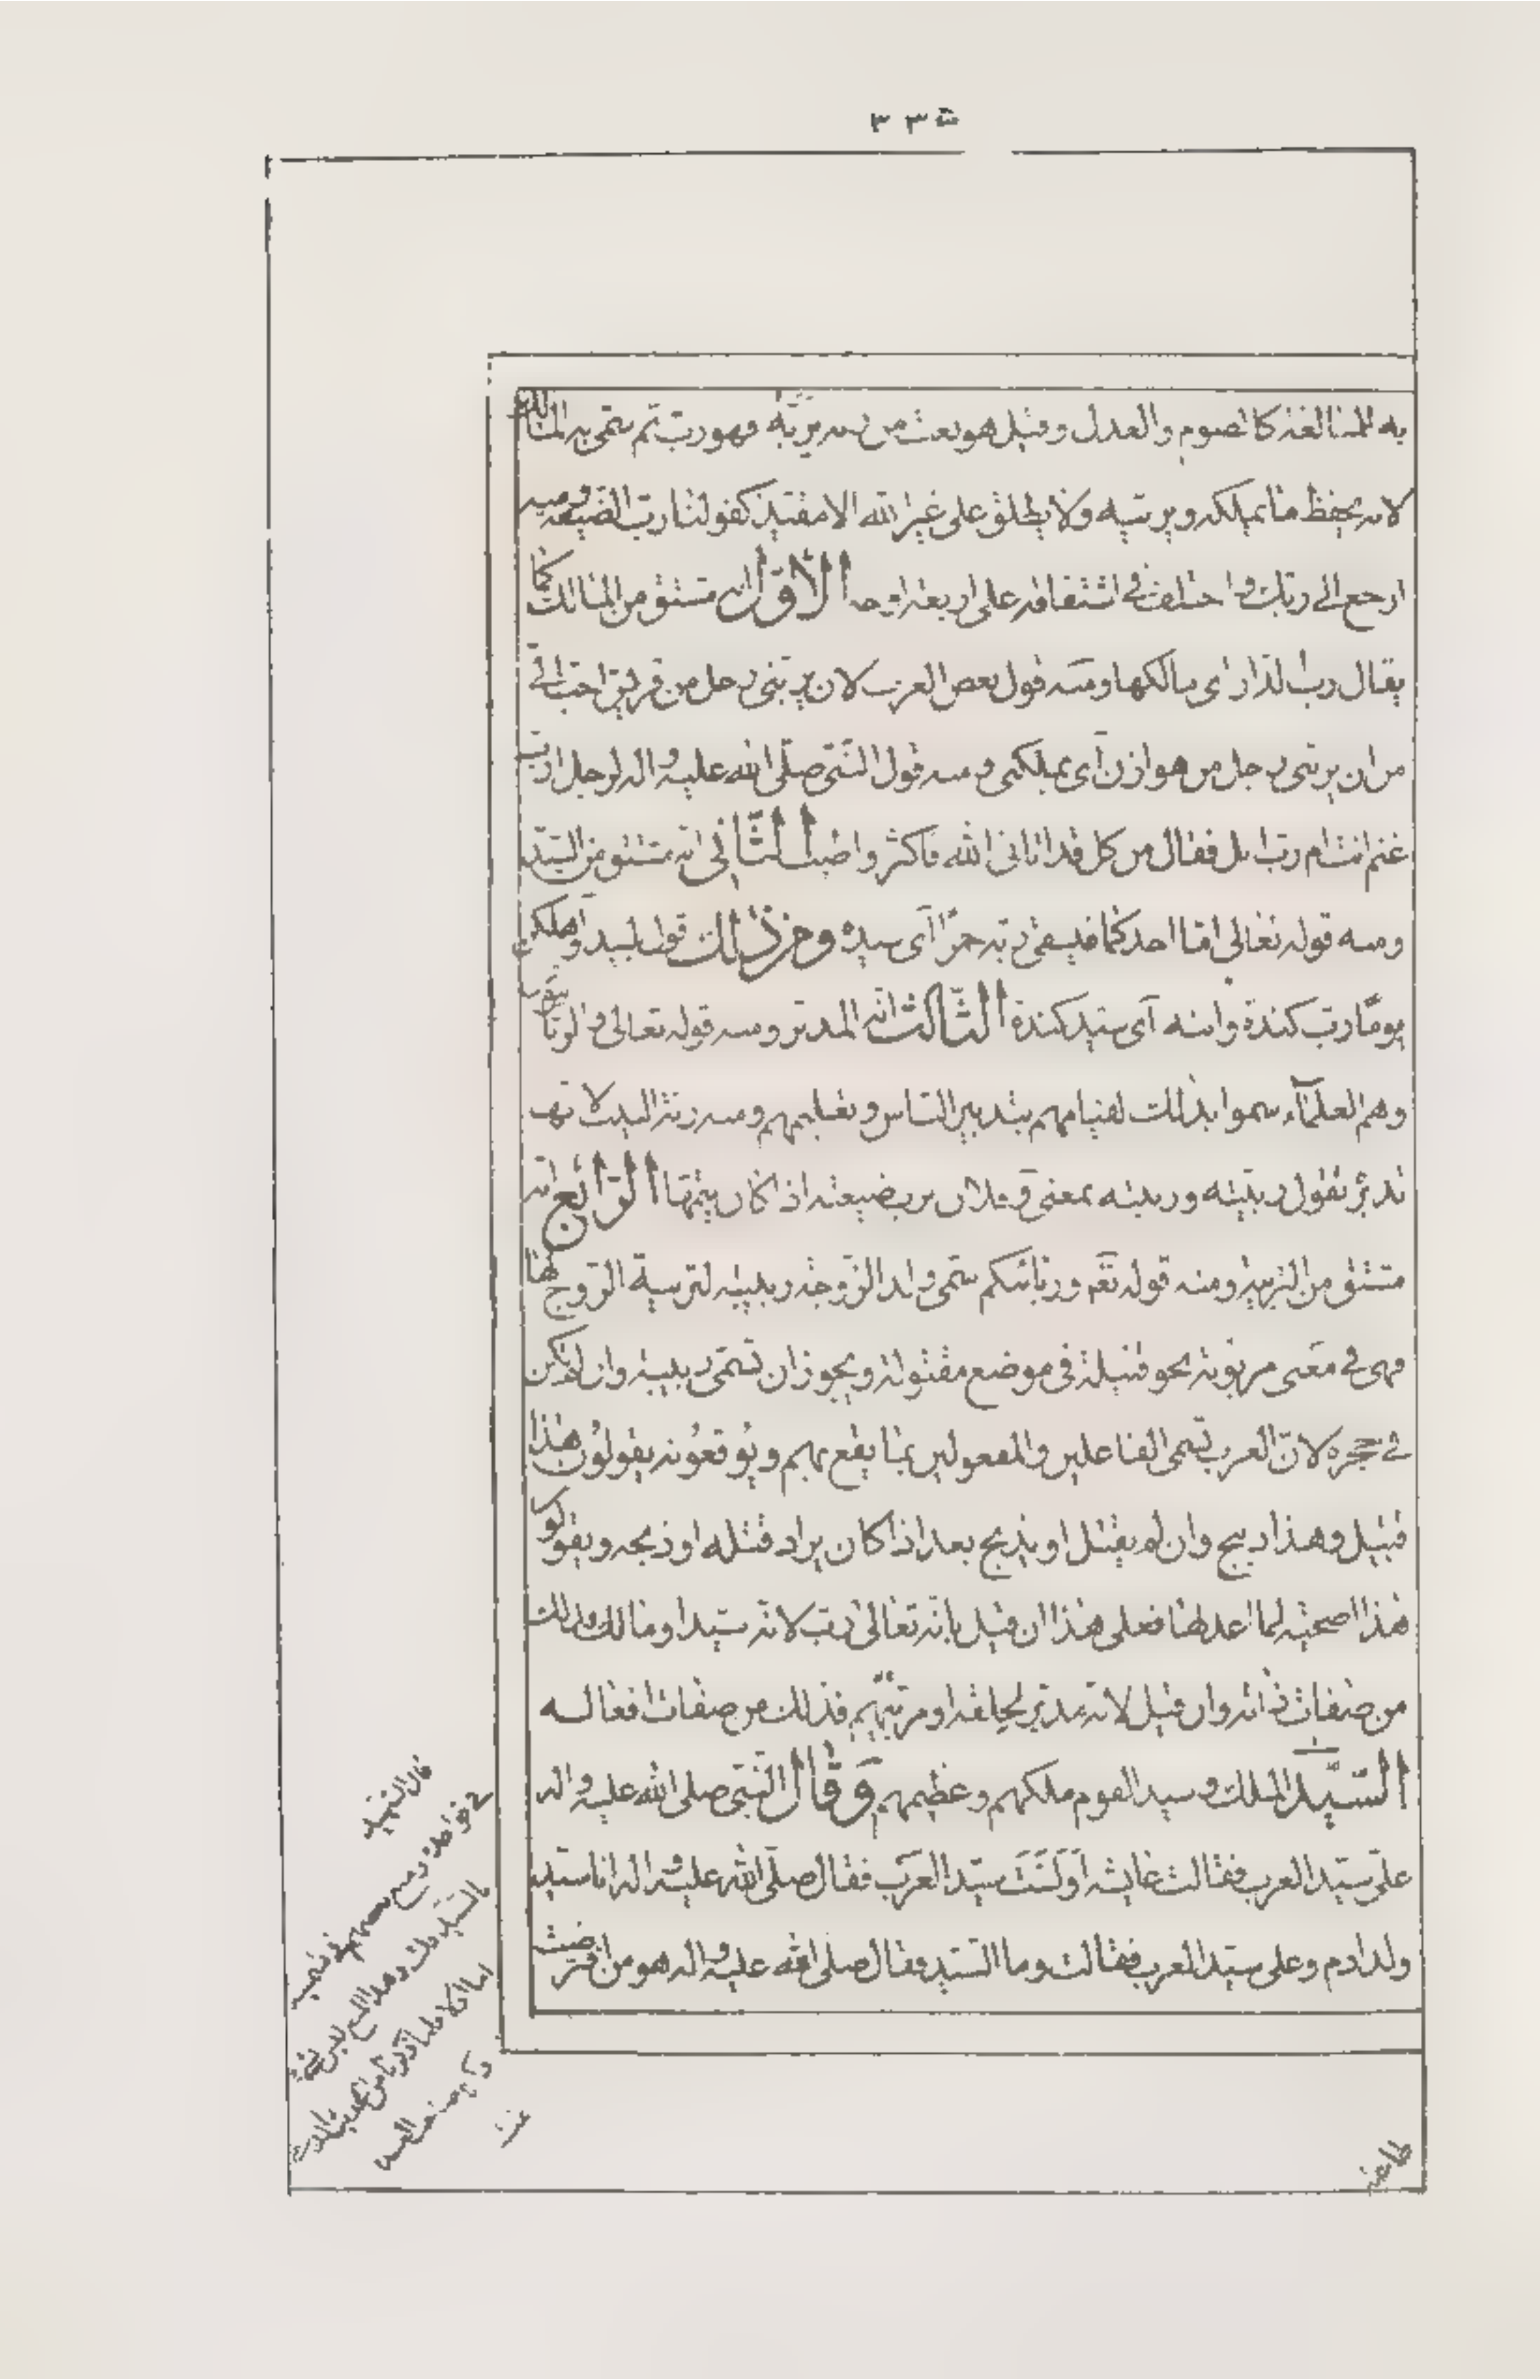 ٣٣٥
به للمبالغة كالصوم والعدل وقيل هو نعت من ربه يربّه فهو ربّ ثم سمّى به المالك
لانه يحفظ ما يملكه ويربّيه ولا يطلق على غير الله الا مقيّد كقولنا ربّ الضيعة ومنه
ارجع الى ربّك واختلف في اشتقاقه على اربعة اوجه الأوّل انه مشتق من المالك كما
يقال ربّ الدار اى مالكها ومنه قول بعض العرب لان يربّني رجل من قريش احبّ الىّ
من ان يربّنى رجل من هوازن اى يملكنى ومنه قول النّبيّ صلّى الله عليه واله لرجل اربّ
غنم انت ام ربّ ابل فقال من كل قد اتانى الله فاكثر واطيب الثّاني انّه مشتق من السيّد
ومنه قوله تعالى امّا احدكما فيسقى ربّه خمرًا اى سيده ومن ذلك قول لبيد واهلكن
يومًا ربّ كندة وابنه اى سيّد كندة الثّالث انّه المدبّر ومنه قوله تعالى والربّانيّون
وهم العلماء سموا بذلك لقيامهم بتدبير النّاس وتعليمهم ومنه ربّة البيت لانّها
تدبّره تقول ربّيته وربّبته بمعنى وفلان يربّ ضيعته اذا كان يتمّها الرّابع انّه
مشتق من التربية ومنه قوله تعٓ وربائبكم سمّى ولد الزّوجة ربيبه لتربية الزّوج لها
فهى في معنى مربوبة نحو قتيلة فى موضع مقتولة ويجوز ان تسمّى ربيبة وان لم تكن
في حجره لانّ العرب تسمى الفاعلين والمفعولين بما يقع بهم ويُوقعُونه يقولُون هذا
قتيل وهذا ذبيح وان لم يقتل او يذبح بعد اذا كان يراد قتله او ذبحه ويقولو
هذا اضحية لما اعدها فعلى هذا ان قيل بانّه تعالى ربّ لانّه سيّد او مالك فذلك
من صفات ذاته وان قيل لانّه مدبّر لخلقه او مربّيهم فذلك من صفات افعاله
السّيّد الملك وسيد القوم ملكهم وعظيمهم وَقَال النّبيّ صلى الله عليه واله
علىّ سيّد العرب فقالت عايشه اَوَلَسْتَ سيّد العرب فقال صلّى الله عليه واله انا سيّد
ولد ادم وعلى سيّد العرب فقالت وما السّيد فقال صلى الله عليه واله هو من افترضت
قال الشّهيد
في قواعده
طاعته